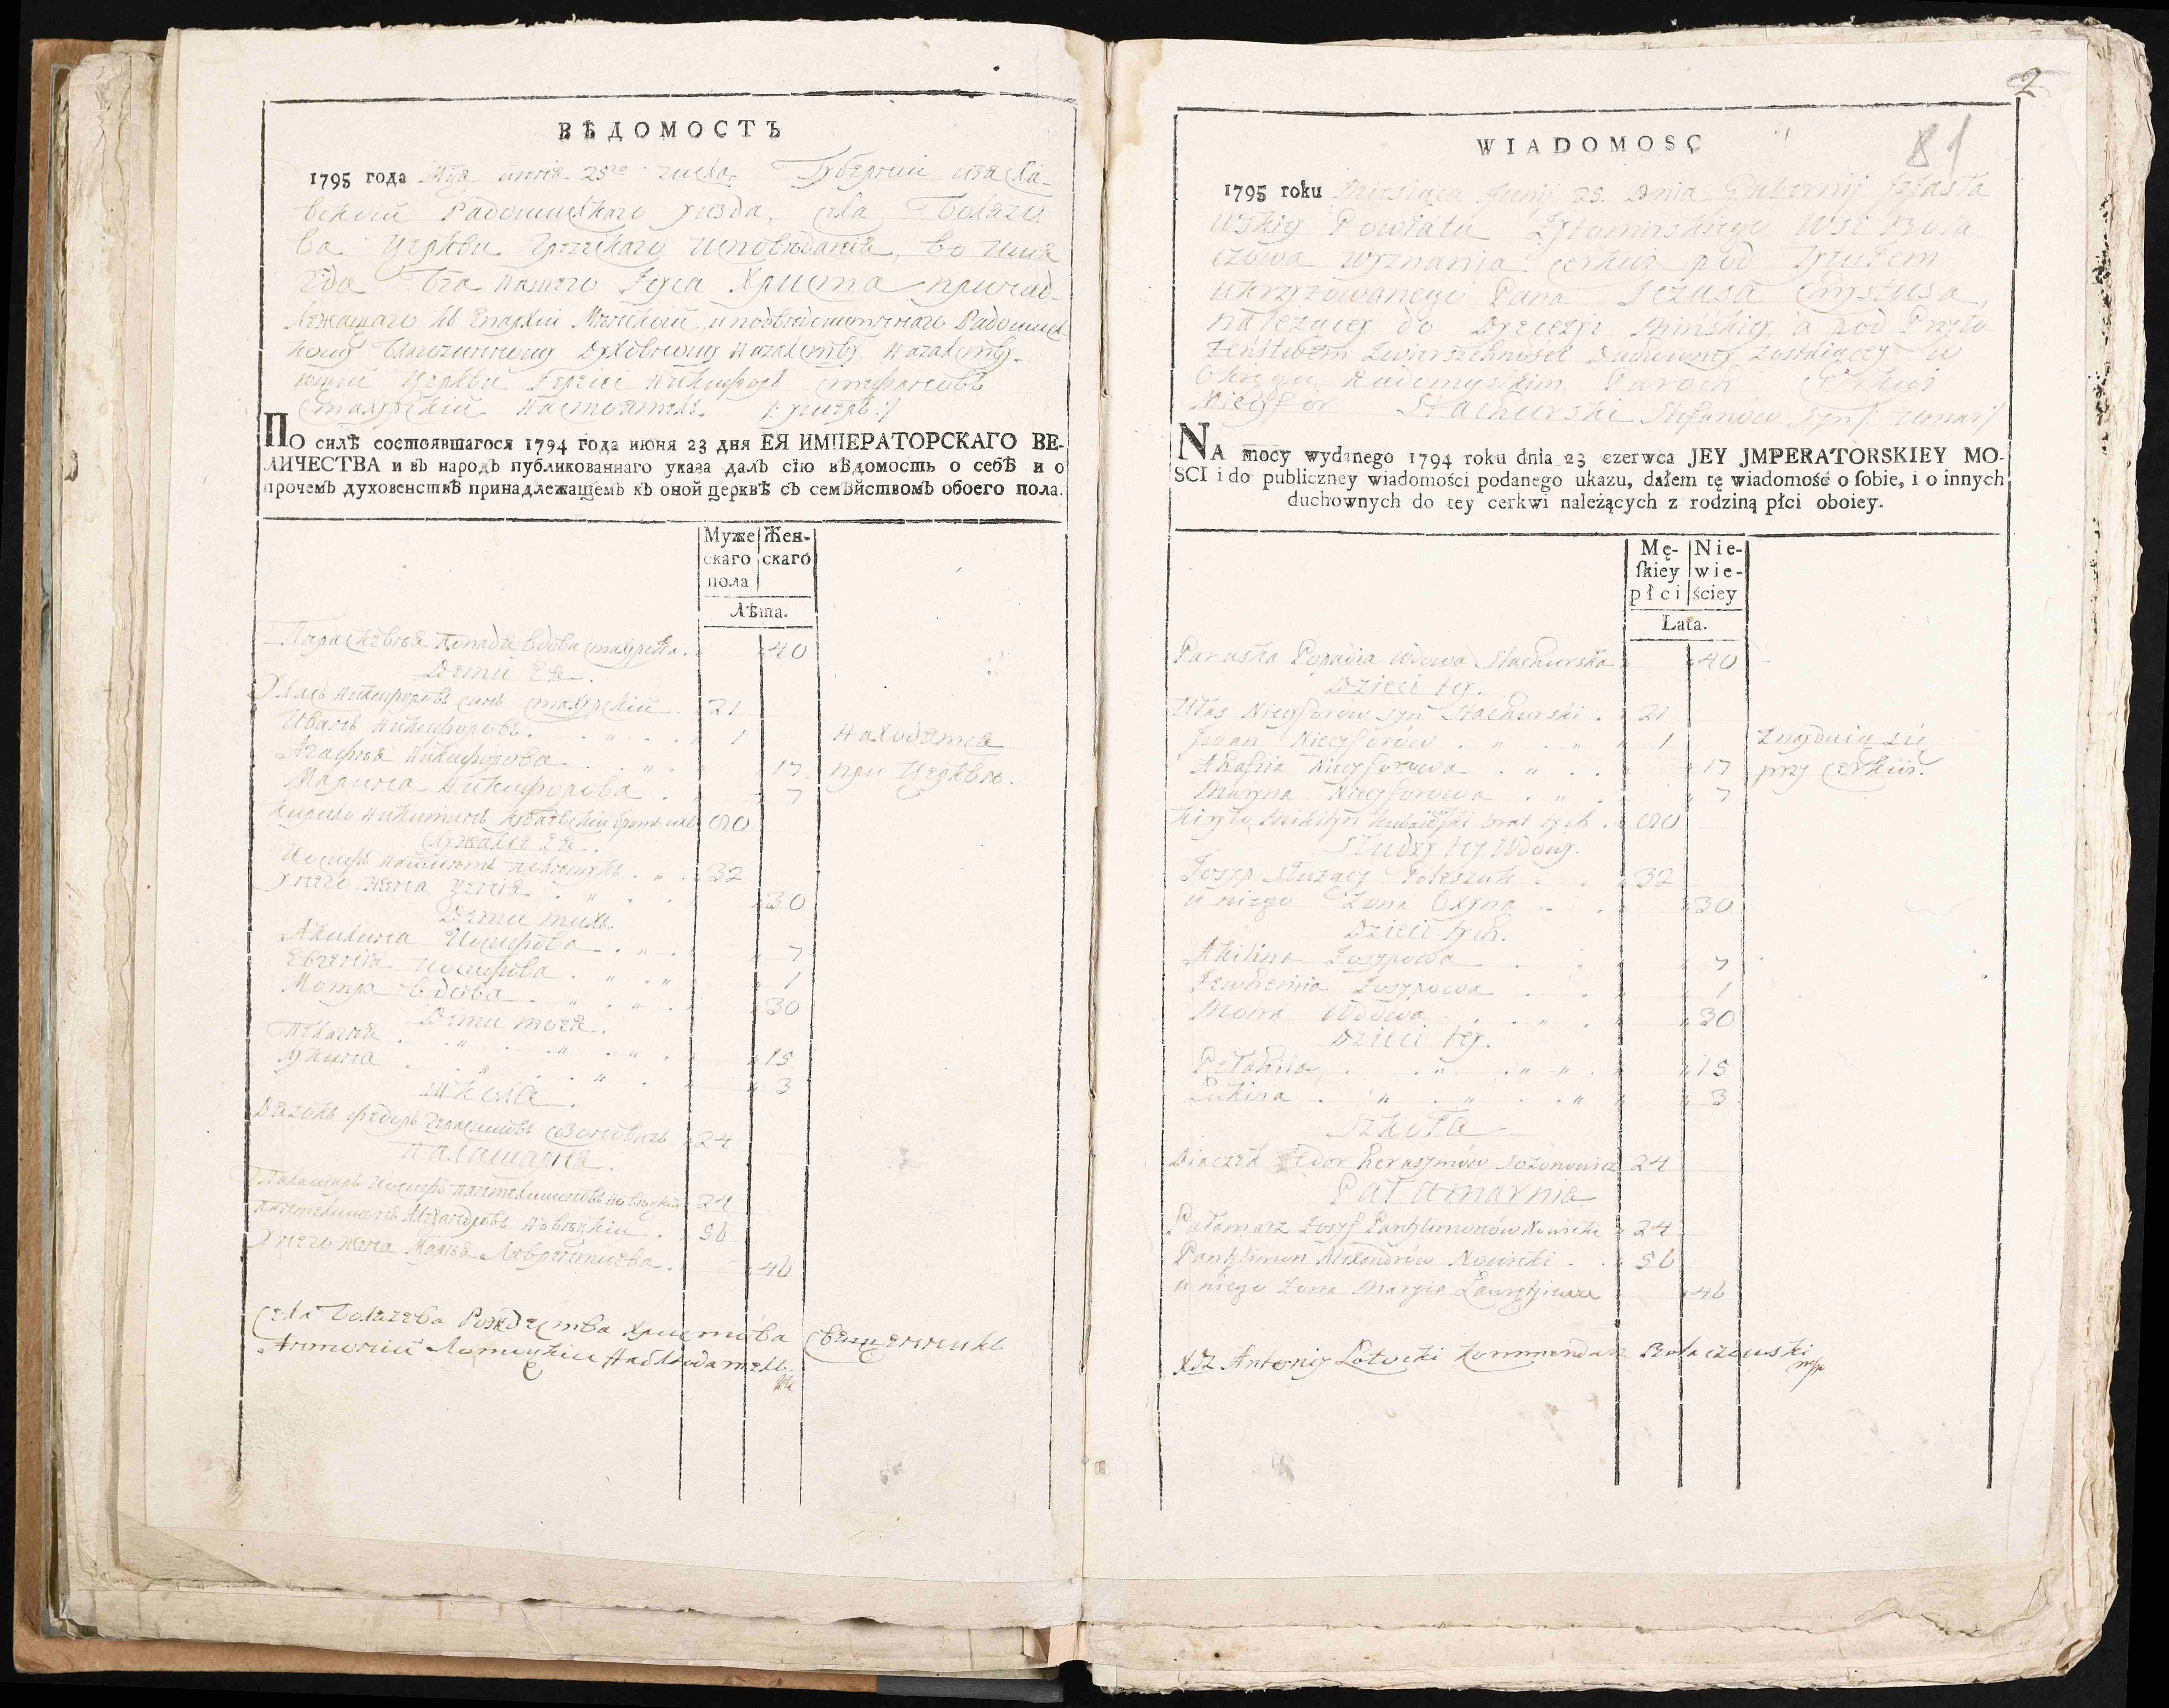 ВѢДОМОСТЬ
1795 года Мца июнія 25го числа Губерніи Изясла-
вской Радомислкаго уизда, села Болячо
ва Церкви Греческаго исповѣданія, во имя
Гда Бга нашего Іисуса Христа принад-
лежащаго къ Епархіи Мѣнской, и подвѣдомственнаго Радомисл
кому Благочинному Духовному Началству, Началству-
ющій Церкви Іерей Никифоръ Стефановъ
Стахурскій настоятель. /: умеръ :/
ПО силѣ состоявшагося 1794 года июня 23 дня ЕЯ ИМПЕРАТОРСКАГО ВЕ-
ЛИЧЕСТВА и въ народъ публикованнаго указа далъ сїю вѣдомость о себѣ и о
прочемъ духовенствѣ принадлежащемъ къ оной церквѣ съ семьйствомъ обоего пола.
Муже Жен-
скаго скаго
пола
Лѣта.
Параскевія попадя вдова Стахурска . 40
Дети Ея.
Уласъ Никифоровъ синъ Стахурскій . 21
Иванъ Никифоровъ . " . . 1 находятся
Агафія Никифорова . . " . 17 при Церквѣ.
Марина Никифорова . 7
Кирило Никитинъ 80
Служащіе Ея.
Иосифъ полѣшукъ . " . 32
У него жена " . 30
Дети тихъ.
Акилина Иосифова . " . 7
Евгенія Иосифова . " . " 1
Мотра вдова . " . " . 30
Дети тоея.
Пелагія . " . " . " . 15
Лукина . " . " . 3
Школа.
Дячокъ Федоръ Герасимовъ Созоновичъ 24
Паламарня.
Паламаръ Иосифъ Пантелимоновъ Новѣцкій 24
Пантелимонъ Александровъ Новѣцкій . 56
У него жена Марія Лаврентиева . 46
Села Болячева Рождества Христова Священникъ
Антоній Лотоцкій Наблюдатель.
2
81
WIADOMOSC
1795 roku Miesiąca Junij 25. Dnia Gubernij Jzasła
wskiy Powiatu Żytomirskiego Wsi Bola
czowa wyznania cerkwi pod Tytułem
Ukrzyżowanego Pana Jezusa Chrystusa,
należącey do Dyecezyi Mińskiey, a pod Przyło
żeństwem Zwierszchności Duchowney zostaiącey w
Okręgu Radomyskim Paroch Cerkwi
Nicyfor Stachurski Stefanów Syn /: Umarł :/
NA mocy wydanego 1794 roku dnia 23 czerwca JEY JMPERATORSKIEY MO-
SCI i do publiczney wiadomości podanego ukazu, dałem tę wiadomość o ſobie, i o innych
duchownych do tey cerkwi należących z rodziną płci oboiey.
Mę- Nie-
ſkiey wie-
płci ściey
Lata.
Paraska Popadia Wdowa Stachurska 40
Dzieci tey.
Ułas Nicyforów syn Stachurski . 21
Jwan Nicyforów . " . " 1 znayduią się
Ahafia Nicyforowa . " . . 17 przy Cerkwi.
Maryna Nicyforowa . " . 7
Kiryło Mikityn brat tych . 80
Słudzy tey Wdowy.
Josyp służący Poleszuk . . 32
u niego Żona Oxyna . . 30
Dzieci tych.
Akilina Josypowa . . 7
Jewhenia Josypowa . . 1
Motra Wdowa . . " . 30
Dzieci tey.
Pełahija . . " . " " . 15
Łukina . " . " . . " 3
Szkoła
Diaczek Fedor Herasymów Sozonowicz 24
Pałamarnia
Pałamarz Josyf Pantylimonów Nowicki 24
Pantylimon Alexandrów Nowicki . . 56
u niego żona Maryia Ławrętyiewa 46
Xdz Antoniy Łotocki Kommendarz Bolaczewski
mp